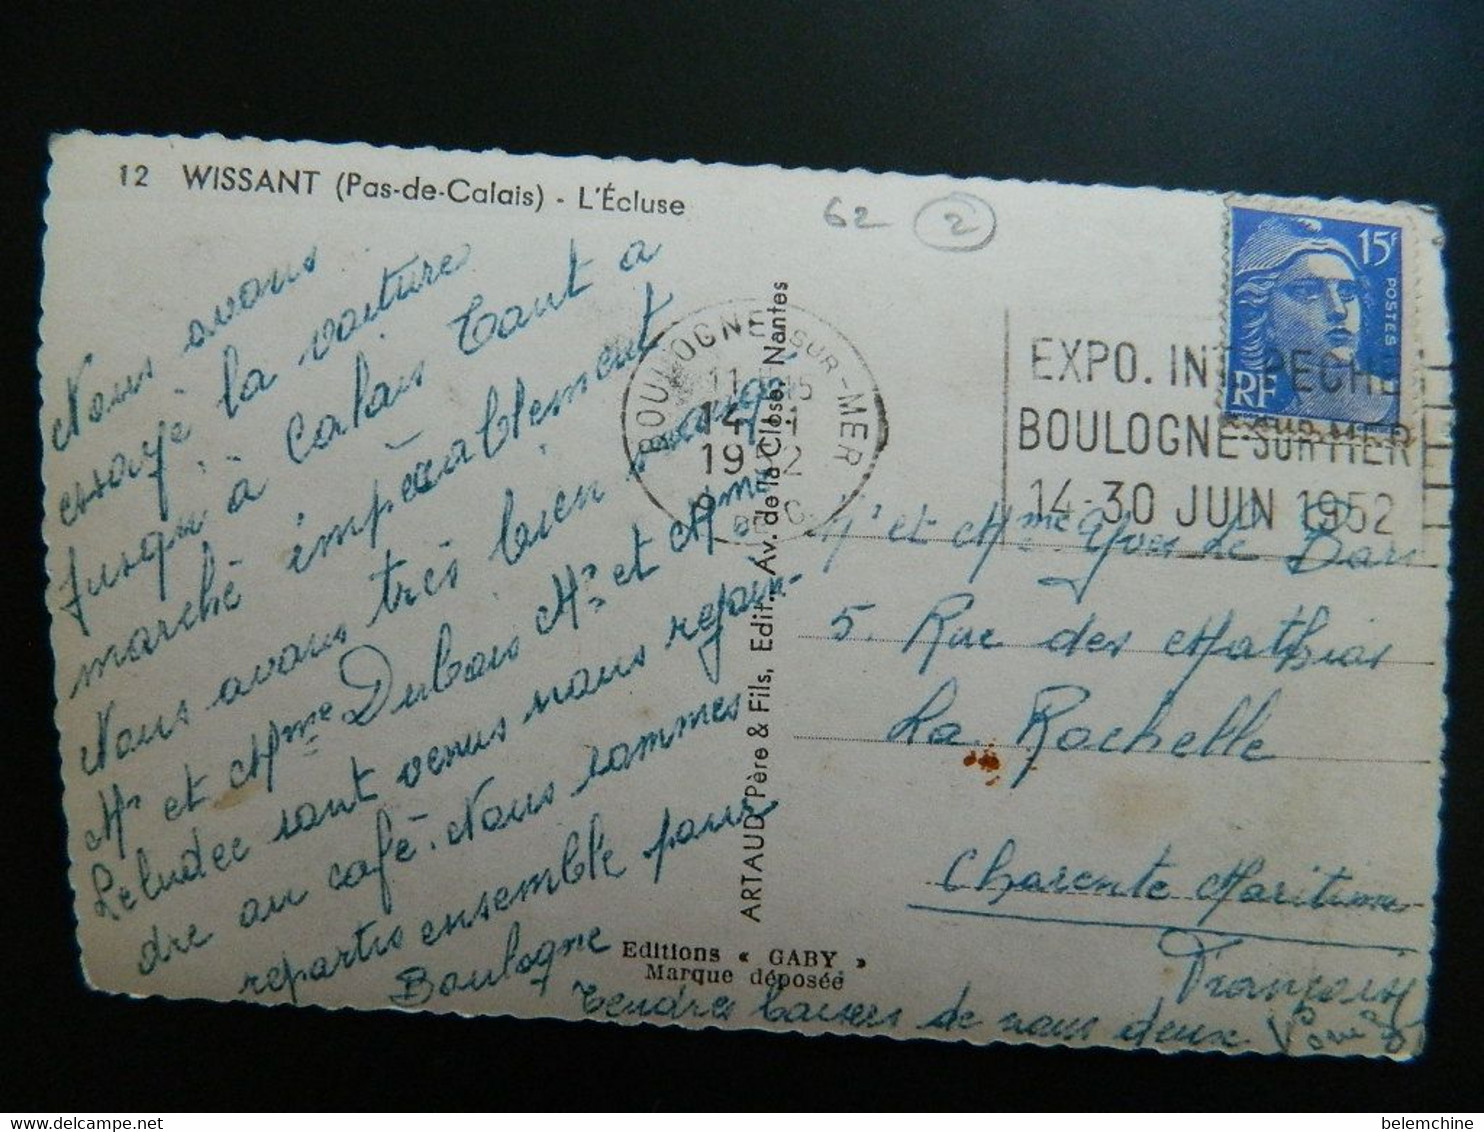 12 WISSANT (Pas-de-Calais) - L'Écluse
62 2
Nous avons
essayé la voiture
jusqu'à Calais Tout a
marché impéccablement
Nous avons très bien mangé
Mr et Mme Dubois Mr et Mme
Leludec sont venus nous rejoin-
dre au café. Nous sommes
repartis ensemble pour
Boulogne
Tendres baisers de nous deux
Françoise
ARTAUD Père & Fils, Edit., Av. de la Close, Nantes
Editions « GABY »
Marque déposée
BOULOGNE-SUR-MER
14-1
1952
15F
POSTES
RF
EXPO. INT. PECHE
BOULOGNE-SUR-MER
14-30 JUIN 1952
Mr et Mme Yves Le
5. Rue des
La Rochelle
Charente Maritime
belemchine